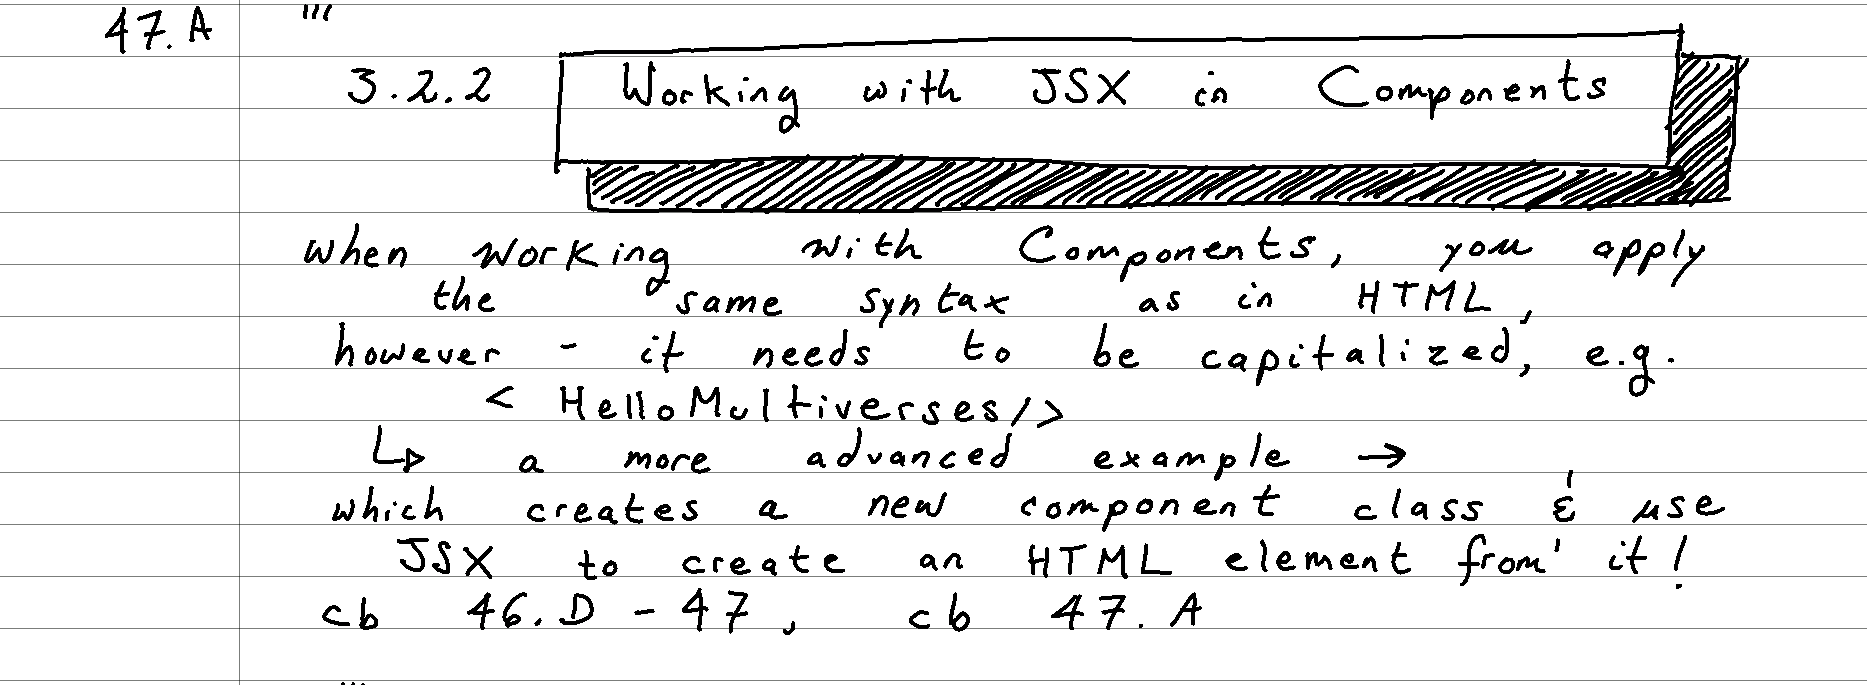 47.A '''
3.2.2 Working with JSX in Components
when working with Components, you apply
the same syntax as in HTML,
however - it needs to be capitalized, e.g.
< HelloMultiverses/>
↳ a more advanced example →
which creates a new component class & use
JSX to create an HTML element from' it!
cb 46.D - 47, cb 47.A
'''